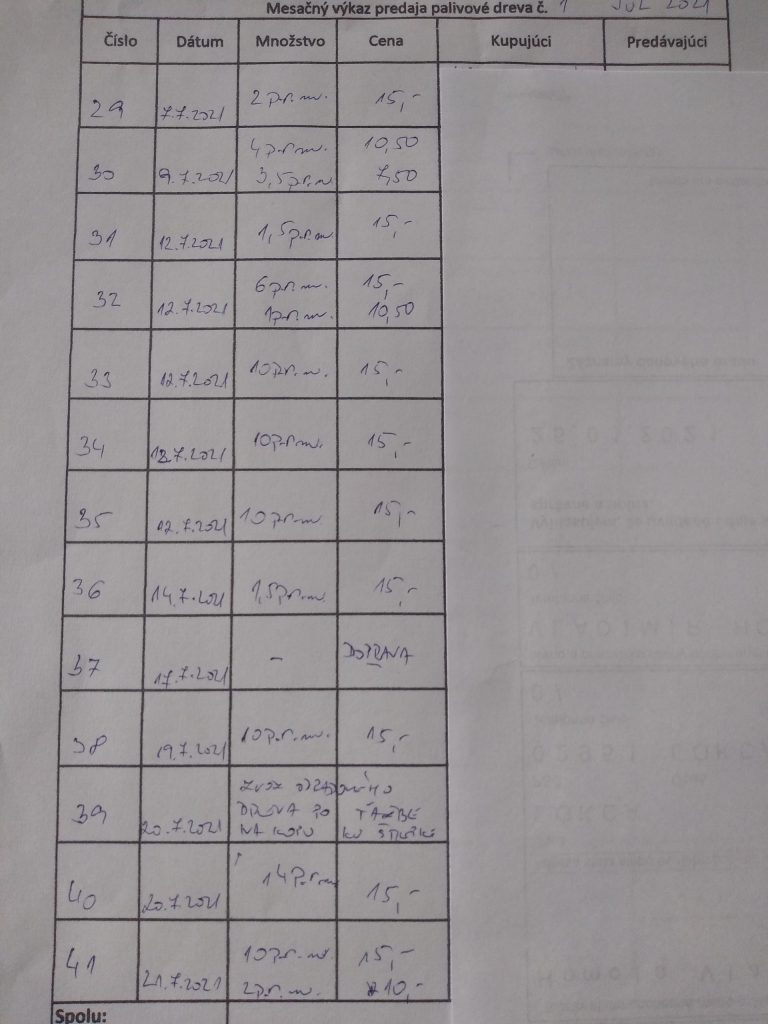 Mesačný výkaz predaja palivové dreva č. 1 JÚL 2021
Číslo Dátum Množstvo Cena Kupujúci Predávajúci
29 7.7.2021 2 p.r.m. 15,-
4 p.r.m. 10,50
30 9.7.2021 3,5 p.r.m 7,50
31 12.7.2021 1,5 p.r.m. 15,-
6 p.r.m. 15,-
32 12.7.2021 1 p.r.m. 10,50
33 12.7.2021 10 p.r.m. 15,-
34 12.7.2021 10 p.r.m. 15,-
35 12.7.2021 10 p.r.m 15,-
36 14.7.2021 1,5 p.r.m. 15,-
37 17.7.2021 - DOPRAVA
38 19.7.2021 10 p.r.m. 15,-
ZVOZ
39 DREVA PO ŤAŽBE
20.7.2021 NA KOPU KU
40 20.7.2021 14 p.r.m 15,-
41 10 p.r.m. 15,-
21.7.2021 2 p.r.m. 10,-
Spolu: